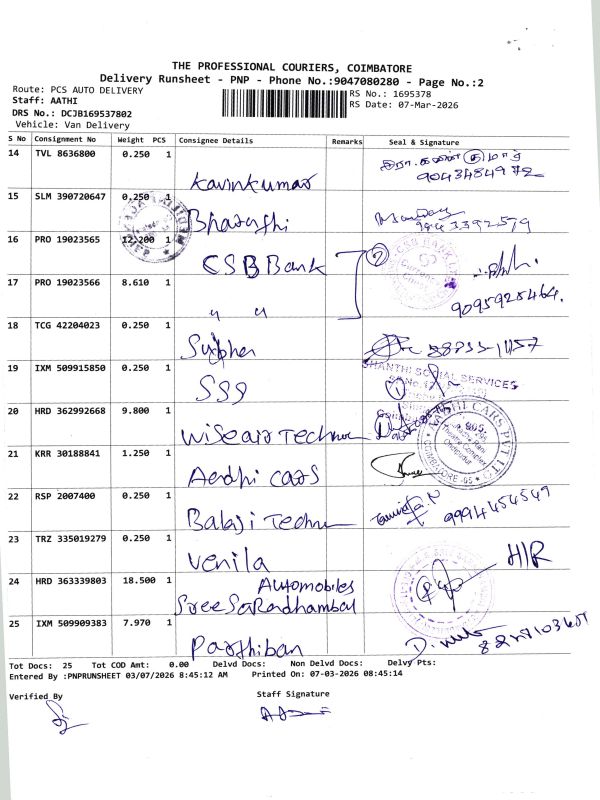 THE PROFESSIONAL COURIERS, COIMBATORE
Delivery Runsheet - PNP - Phone No.:9047080280 - Page No.:2
Route: PCS AUTO DELIVERY
RS No.: 1695378
Staff: AATHI
RS Date: 07-Mar-2026
DRS No.: DCJB169537802
Vehicle: Van Delivery
S No Consignment No Weight PCS Consignee Details Remarks Seal & Signature
14 TVL 8636800 0.250 1
Kavinkumar
15 SLM 390720647 0.250 1
Bharathi
16 PRO 19023565 12.200 1
CSB Bank 2
CSB BANK
17 PRO 19023566 8.610 1
" " 9095925464.
18 TCG 42204023 0.250 1
19 IXM 509915850 0.250 1
SSS
SHANTHI SOCIAL SERVICES
20 HRD 362992668 9.800 1
Wiseair Techno
21 KRR 30188841 1.250 1
AADHI CARS PVT LTD
COIMBATORE -05
Aadhi cars
22 RSP 2007400 0.250 1
Balaji Techno 9994454549
23 TRZ 335019279 0.250 1
Venila
H/R
24 HRD 363339803 18.500 1
Automobiles
Sree Saradhambal
25 IXM 509909383 7.970 1
Parthiban
Tot Docs: 25 Tot COD Amt: 0.00 Delvd Docs: Non Delvd Docs: Delvy Pts:
Entered By :PNPRUNSHEET 03/07/2026 8:45:12 AM Printed On: 07-03-2026 08:45:14
Verified By
Staff Signature